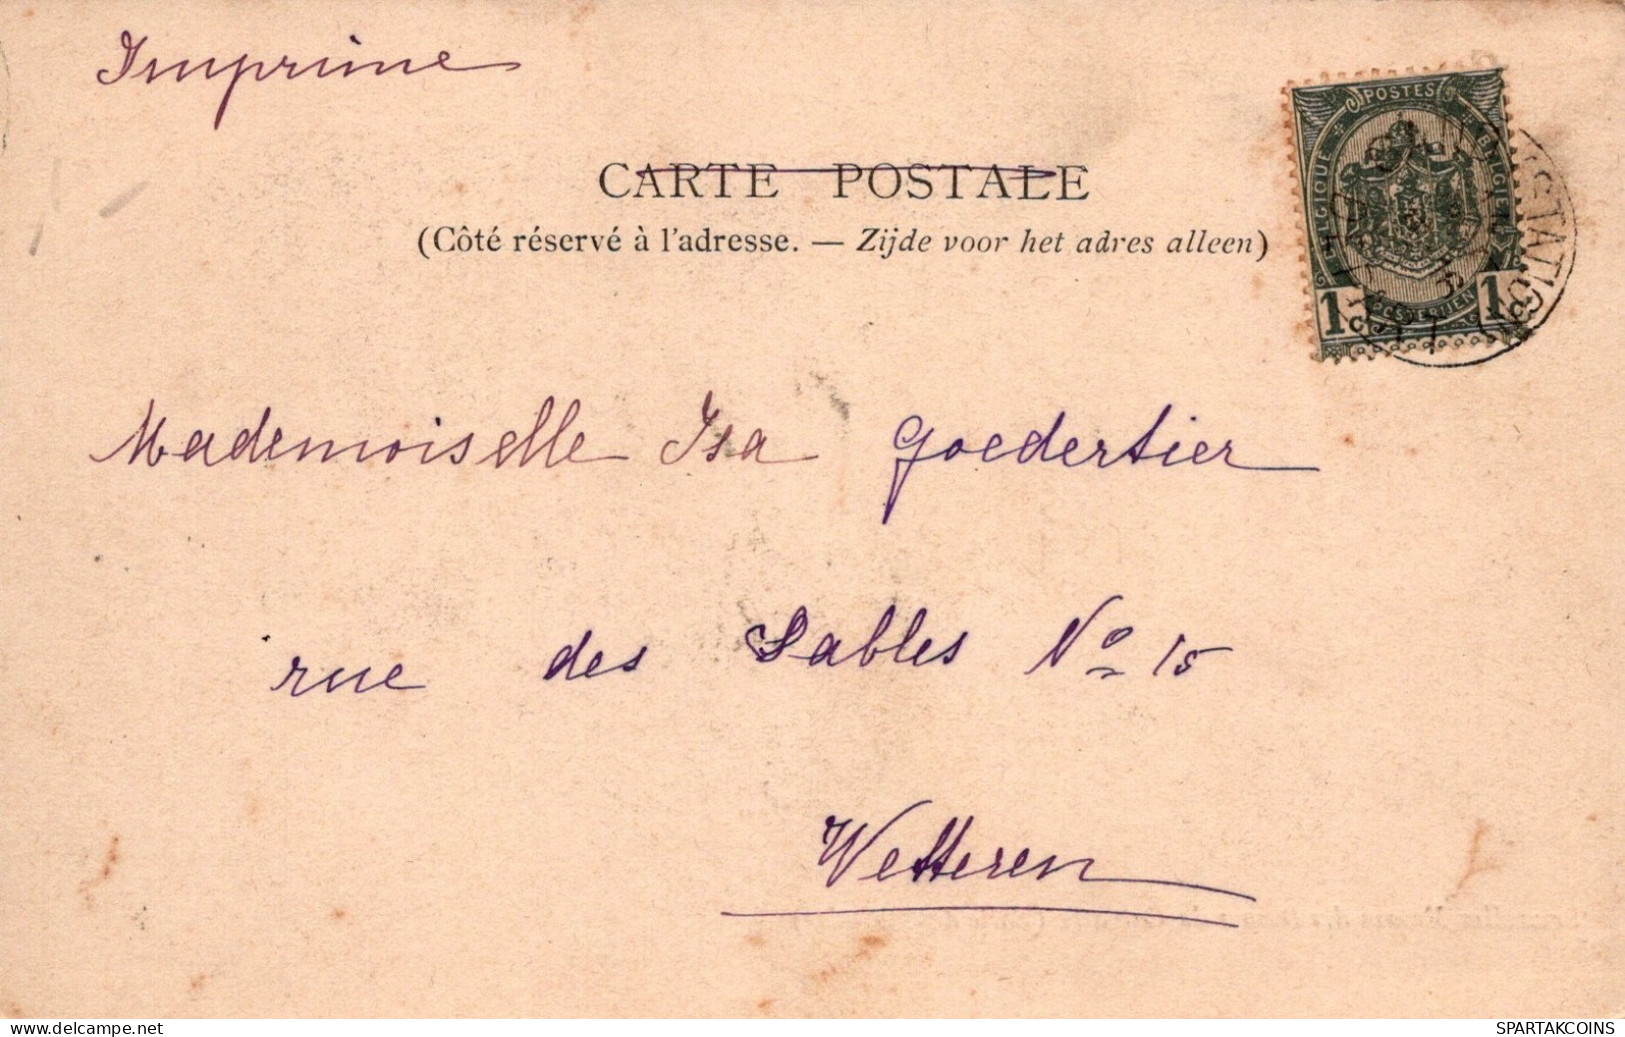 Imprimé
POSTES
CARTE POSTALE
(Côté réservé à l'adresse. — Zijde voor het adres alleen)
1c 1c
Mademoiselle Isa Goedertier
rue des Sables No 15
Wetteren
delcampe.net
SPARTAKCOINS